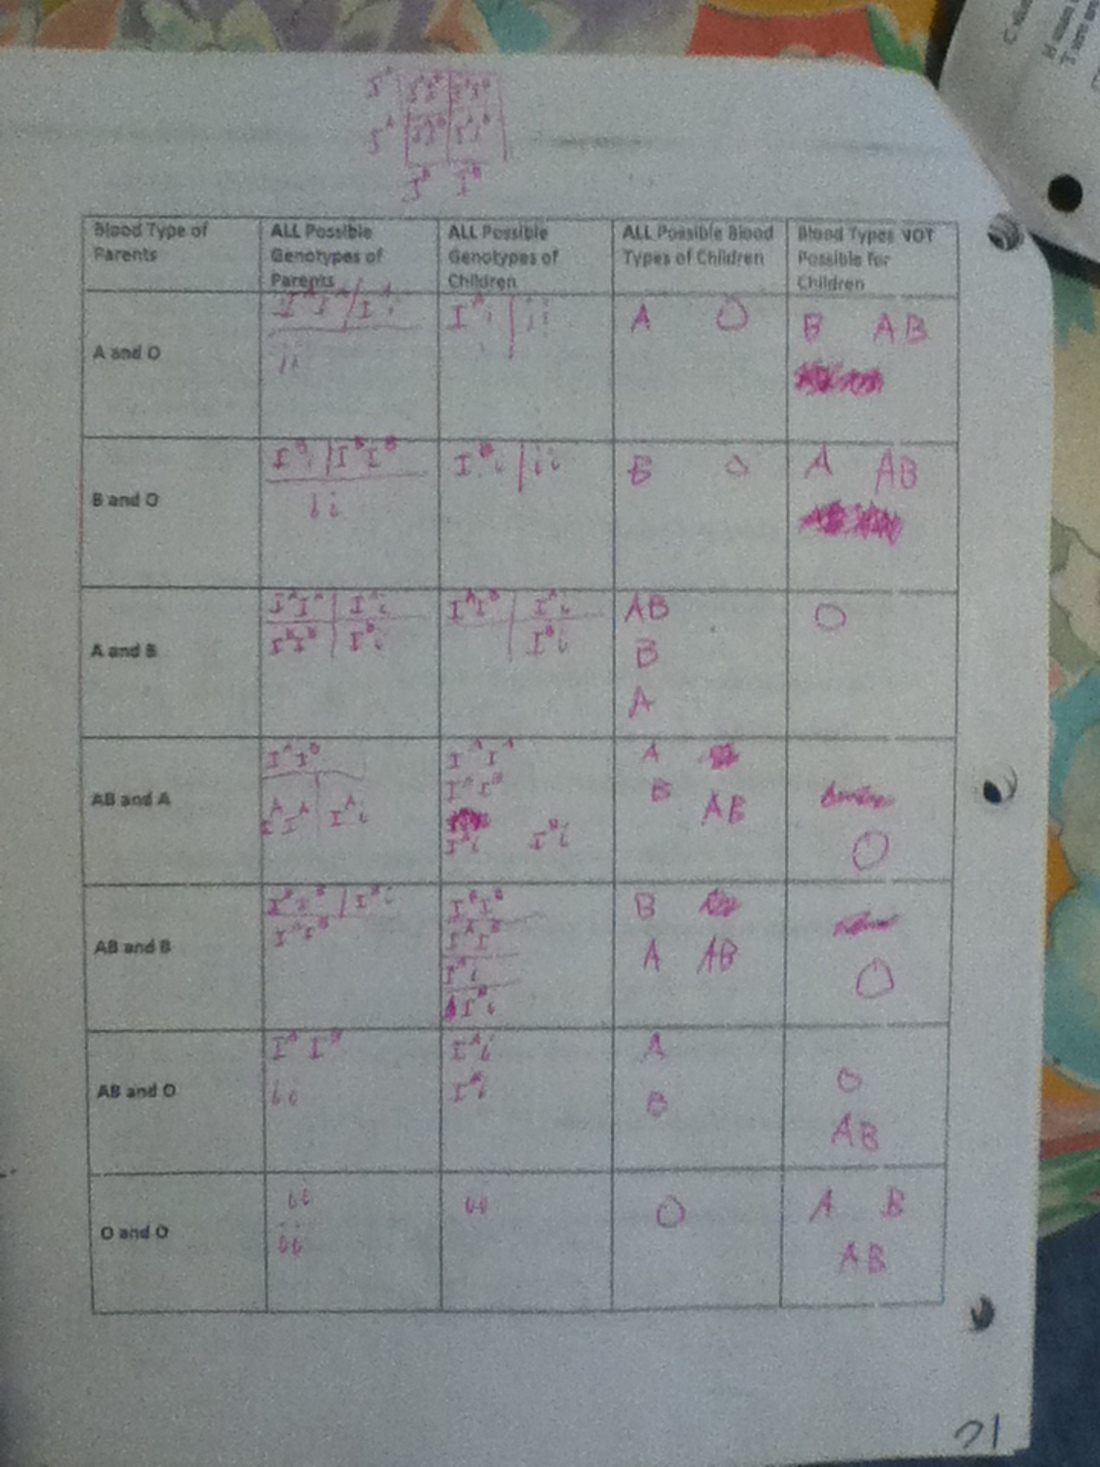 I^A I^A I^B I^A I^B
I^A I^A I^B I^A I^B
I^B I^B
Blood Type of Parents
ALL Possible Genotypes of Parents
ALL Possible Genotypes of Children
ALL Possible Blood Types of Children
Blood Types NOT Possible for Children
A and O
I^A I^A / I^A i
ii
I^A i | ii
A O
B AB
B and O
I^B i | I^B I^B
ii
I^B i | ii
B O
A AB
A and B
I^A I^A | I^A i
I^B I^B | I^B i
I^A I^B | I^A i
I^B i
AB
B
A
O
AB and A
I^A I^B
I^A I^A | I^A i
I^A I^A
I^A I^B
I^A i I^B i
A
B AB
O
AB and B
I^B I^B / I^B i
I^A I^B
I^B I^B
I^A I^B
I^A i
I^B i
B
A AB
O
AB and O
I^A I^B
ii
I^A i
I^B i
A
B
O
AB
O and O
ii
ii
ii
O
A B
AB
21